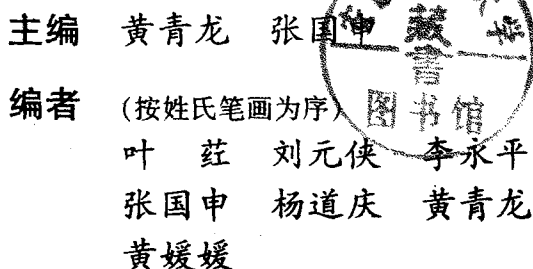 主编 黄青龙 张国申
编者 (按姓氏笔画为序)
叶 荭 刘元侠 李永平
张国申 杨道庆 黄青龙
黄媛媛
藏书
图书馆